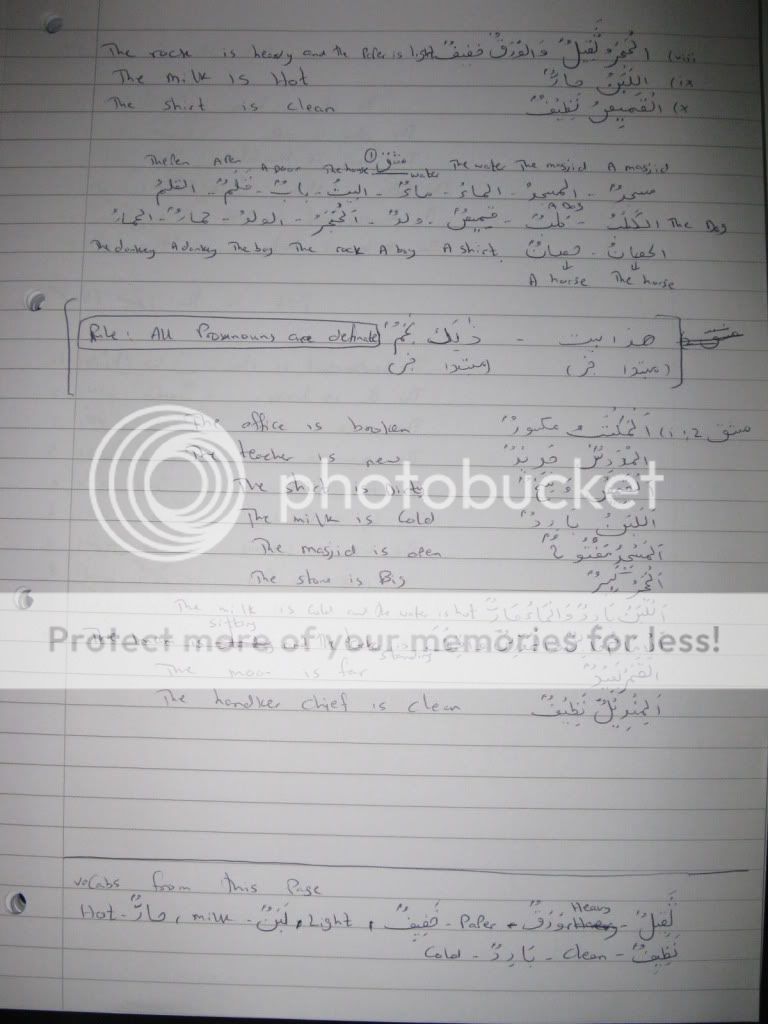 The rock is heavy and the Paper is light الحَجَرُ ثَقِيلٌ وَالوَرَقٌ خَفِيفٌ (viii
The milk is Hot اللَّبَنُ حارٌّ (ix
The shirt is clean القَمِيصُ نَظِيفٌ (x
The Pen A Pen A Door The house water The water The masjid A masjid
مسجدٌ - المسجدُ - الماءُ - ماءٌ - البيتُ - بابٌ - قَلَمٌ - القلمُ
A Dog
The Dog الكَلْبُ - كَلْبٌ - قميصٌ - ولدٌ - الحَجَرُ - الولدُ - حمارٌ - الحمارُ
The donkey A donkey The boy The rock A boy A shirt حصانٌ - الحصانُ
A horse The horse
Rule: All Pronouns are definate ذَلِكَ نَجْمٌ - هذا بيت
(مبتدا خبر) (مبتدا خبر)
The office is broken المَكْتَبُ مكسورٌ (i
The teacher is new المُدَرِّسُ جَدِيدٌ
The shirt is Dirty
The milk is Cold اللَّبَنُ بَارِدٌ
The masjid is open المَسْجِدُ مَفْتُوحٌ
The stone is Big الحَجَرُ كَبِيرٌ
The milk is Cold and the water is hot اللَّبَنُ بَارِدٌ وَالمَاءُ حَارٌّ
sitting
standing
The moon is far القَمَرُ بَعِيدٌ
The handker chief is clean المِنْدِيلُ نَظِيفٌ
photobucket
Protect more of your memories for less!
vocabs from this Page
Heavy
Hot - حارٌّ , milk - لَبَنٌ , Light , خَفِيفٌ - Paper - وَرَقٌ - ثَقِيلٌ
Cold - بَارِدٌ - Clean - نَظِيفٌ